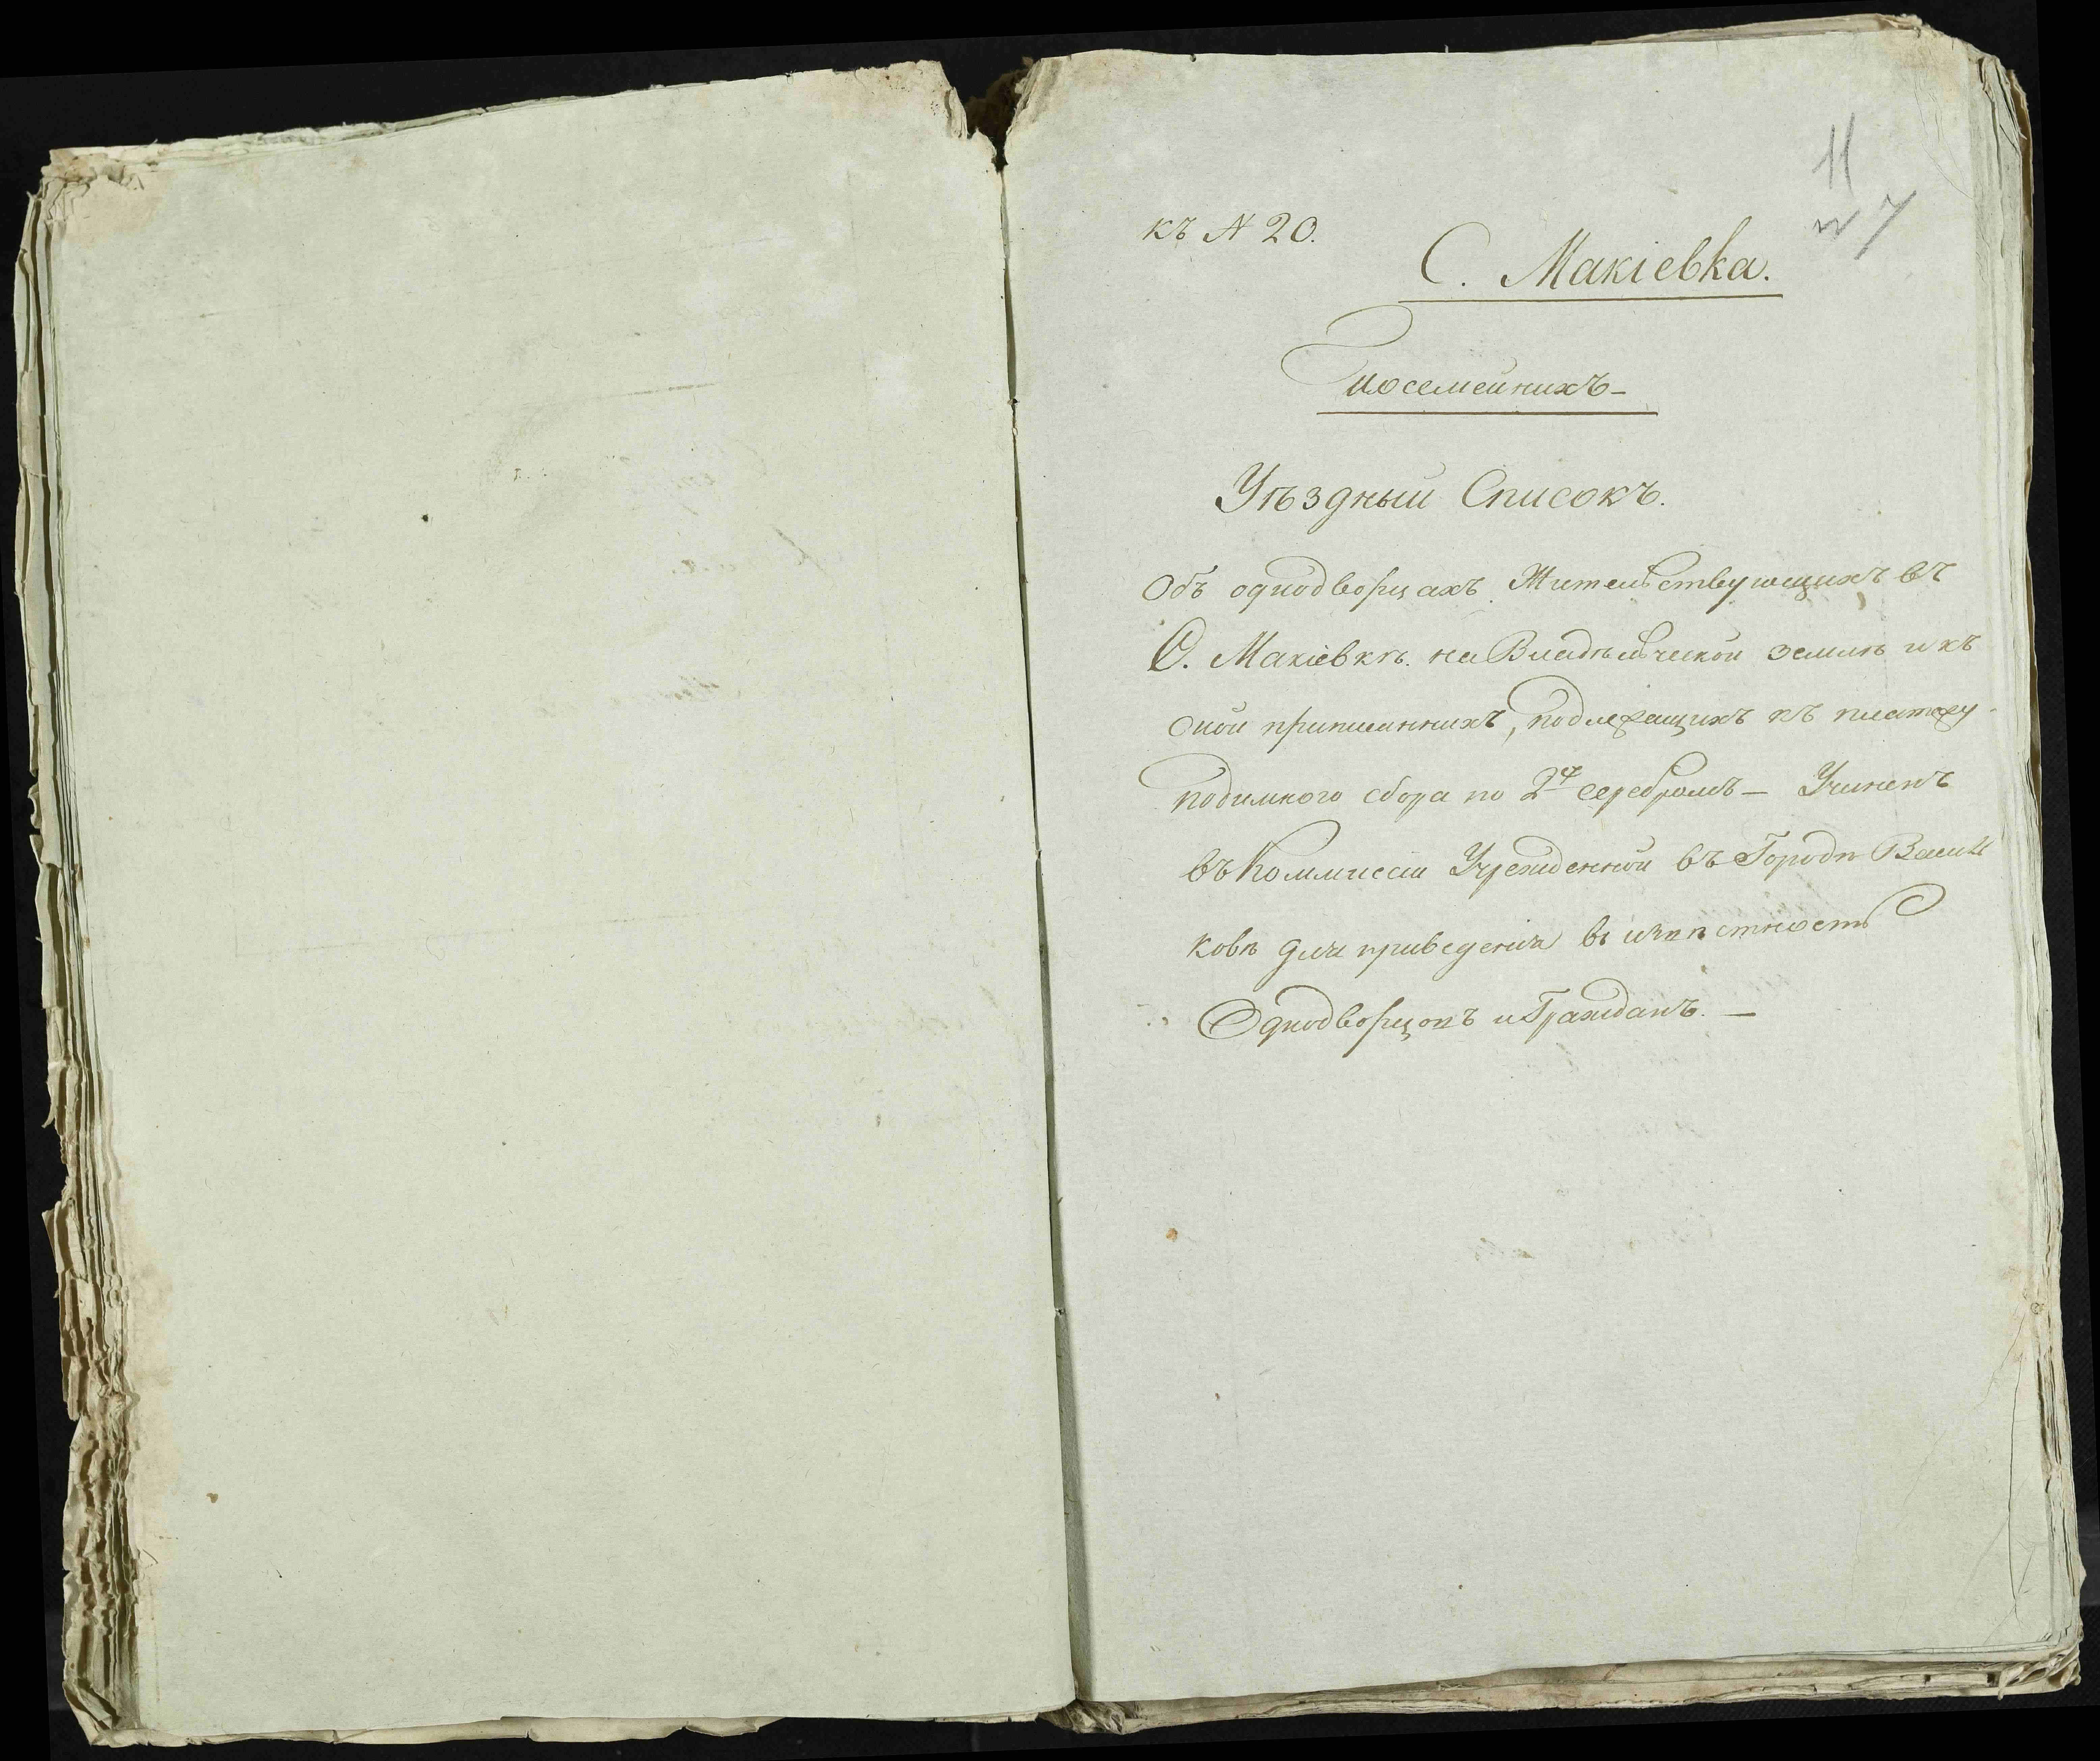 11
къ N 20.
7
С. Макіевка.
посемейнихъ-
Уѣздный Списокъ.
Объ однодворцахъ Жительствующихъ въ
С. Макіевкѣ. на Владѣльческой землѣ и къ
оной приписанныхъ, подлежащихъ къ платежу
подимного сбора по 2 серебромъ — Учиненъ
въ Коммиссіи Учрежденной въ Городѣ Василь
ковѣ для приведенія въ извѣстность
Однодворцовъ и Гражданъ. —